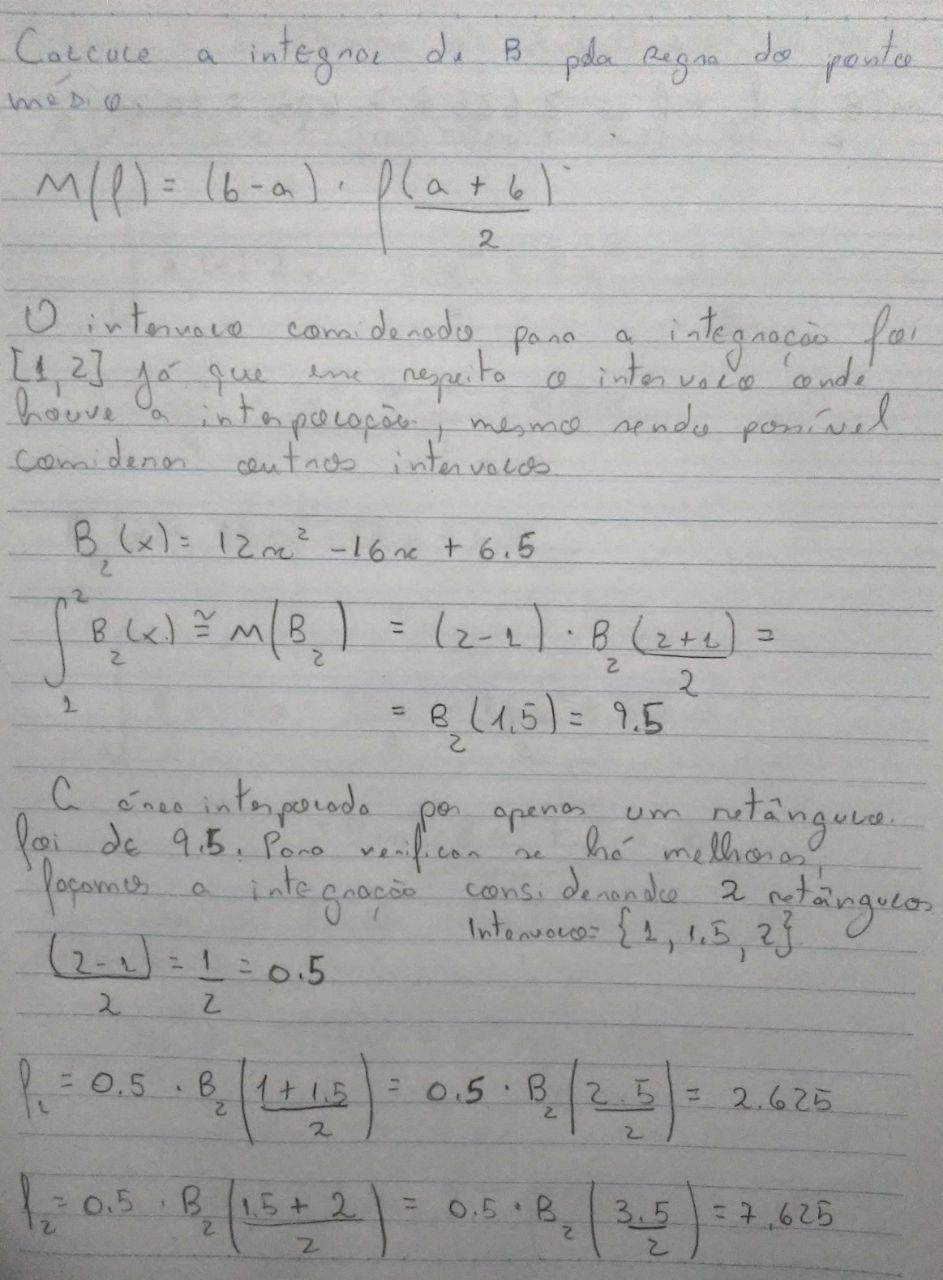 Calcule a integral de B pela Regra do ponto
médio.
M(f) = (b-a) . f((a + b)/2)
O intervalo considerado para a integração foi
[1,2] já que ele respeita o intervalo onde
houve a interpolação, mesmo sendo possível
considerar outros intervalos
B₂(x) = 12x² - 16x + 6.5
∫₁² B₂(x) ≅ M(B₂) = (2-1) · B₂((2+1)/2) =
= B₂(1,5) = 9.5
A área interpolada por apenas um retângulo.
foi de 9.5. Para verificar se há melhoras,
façamos a integração considerando 2 retângulos
Intervalo = {1, 1.5, 2}
(2-1)/2 = 1/2 = 0.5
f₁ = 0.5 . B₂((1 + 1.5)/2) = 0.5 · B₂(2.5/2) = 2.625
f₂ = 0.5 . B₂((1.5 + 2)/2) = 0.5 · B₂(3.5/2) = 7.625